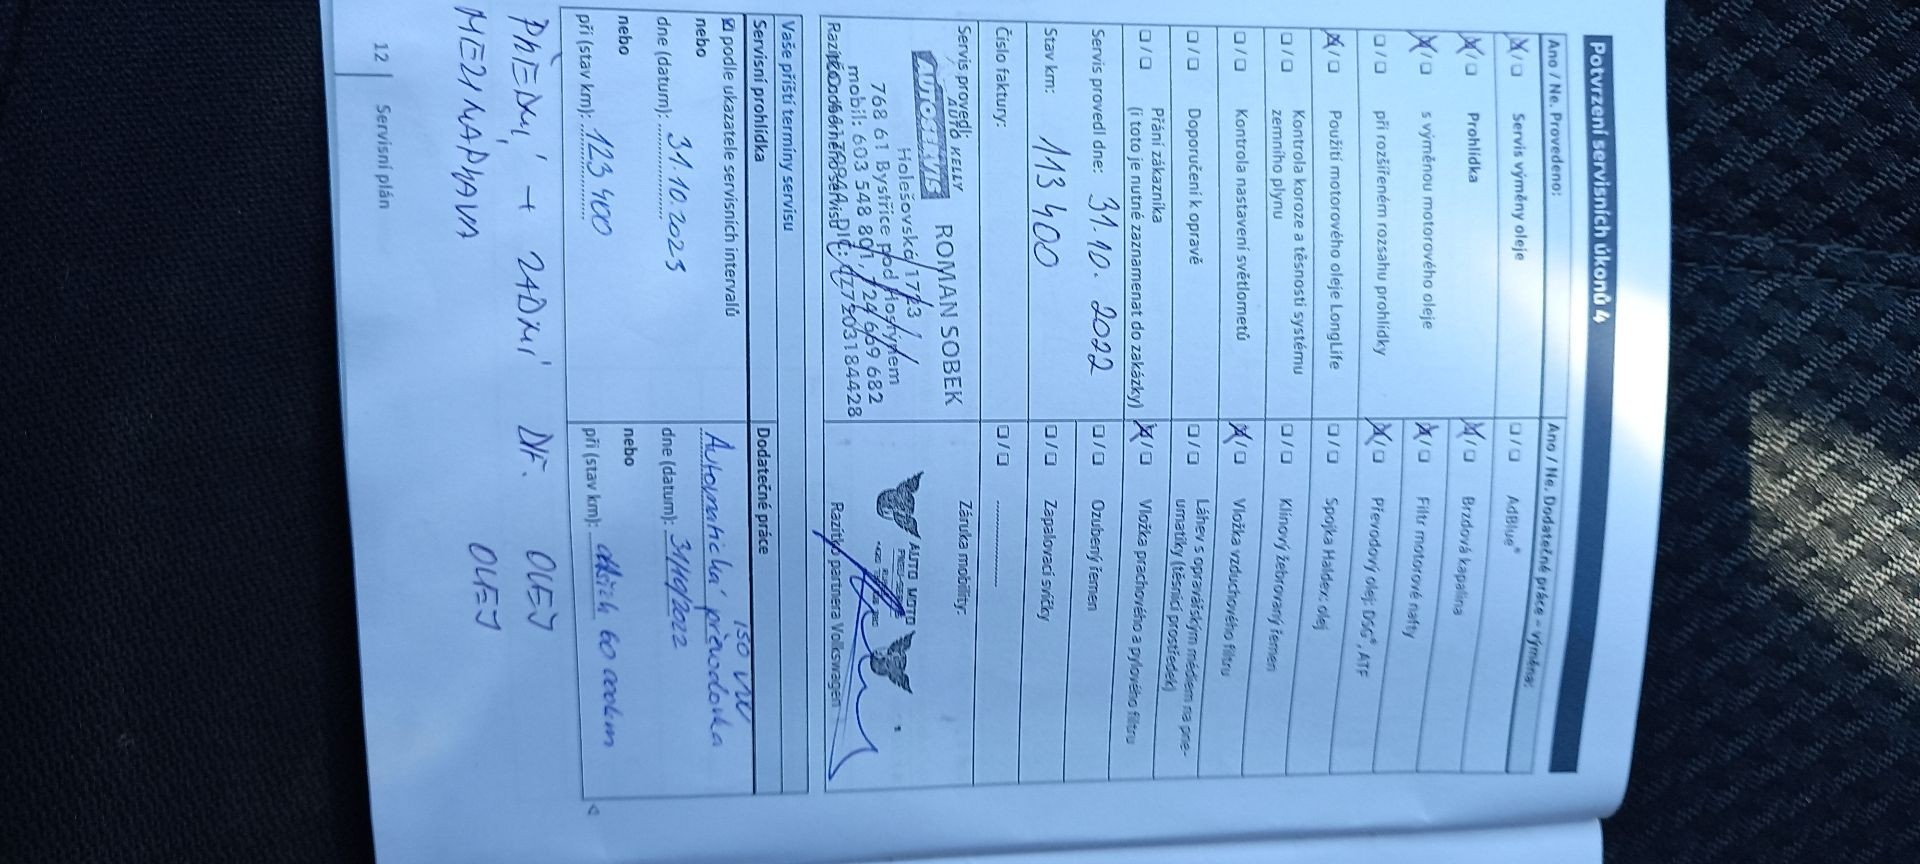 Potvrzení servisních úkonů 4
Ano / Ne. Provedeno:
☒/☐ Servis výměny oleje
☒/☐ Prohlídka
☒/☐ s výměnou motorového oleje
☐/☐ při rozšířeném rozsahu prohlídky
☒/☐ Použití motorového oleje LongLife
☐/☐ Kontrola koroze a těsnosti systému
zemního plynu
☐/☐ Kontrola nastavení světlometů
☐/☐ Doporučení k opravě
☐/☐ Přání zákazníka
(i toto je nutné zaznamenat do zakázky)
Servis provedl dne: 31.10.2022
Stav km: 113 400
Číslo faktury:
Servis provedl:
AUTO KELLY
AUTOSERVIS
ROMAN SOBEK
Holešovská 1773
768 61 Bystřice pod Hostýnem
mobil: 603 548 801, 724 669 682
Razítko odborného servisu
Ano / Ne. Dodatečné práce – výměna:
☐/☐ AdBlue®
☒/☐ Brzdová kapalina
☒/☐ Filtr motorové nafty
☒/☐ Převodový olej: DSG®, ATF
☐/☐ Spojka Haldex: olej
☐/☐ Klínový žebrovaný řemen
☒/☐ Vložka vzduchového filtru
☐/☐ Láhev s opravářským médiem na pne-
umatiky (těsnicí prostředek)
☒/☐ Vložka prachového a pylového filtru
☐/☐ Ozubený řemen
☐/☐ Zapalovací svíčky
☐/☐ ....................
Záruka mobility:
AUTO MOTO
Razítko partnera Volkswagen
Vaše příští termíny servisu
Servisní prohlídka
☑ podle ukazatele servisních intervalů
nebo
dne (datum): 31.10.2023
nebo
při (stav km): 123 400
Dodatečné práce
Automatická převodovka
dne (datum): 31/10/2022
nebo
při (stav km): dalších 60 000km
PŘEDNÍ + ZADNÍ DIF. OLEJ
MEZINAPRAVA OLEJ
12 | Servisní plán